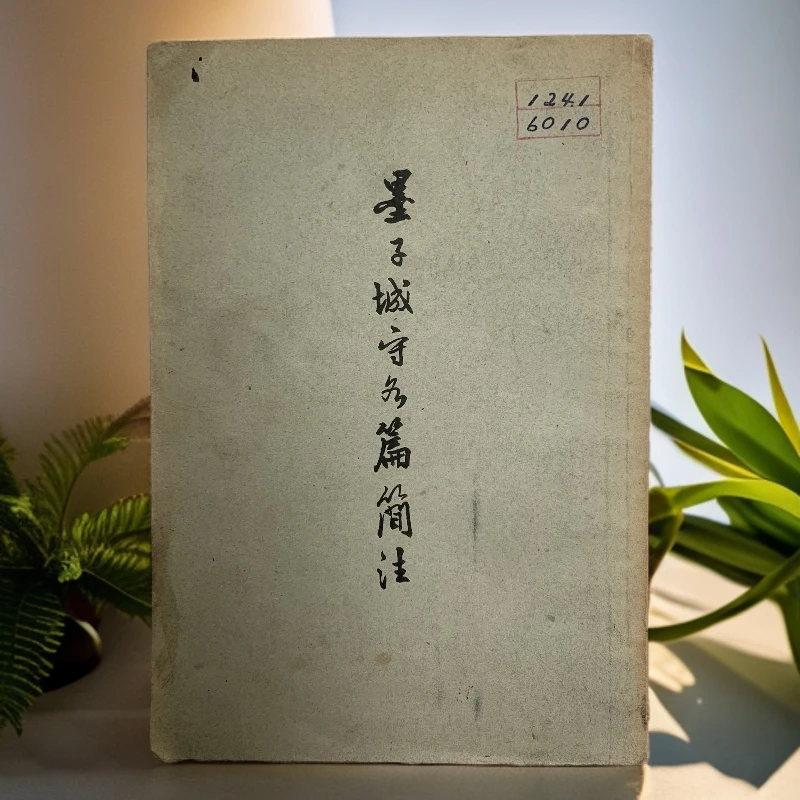 124.1
6010
墨子城守各篇簡注